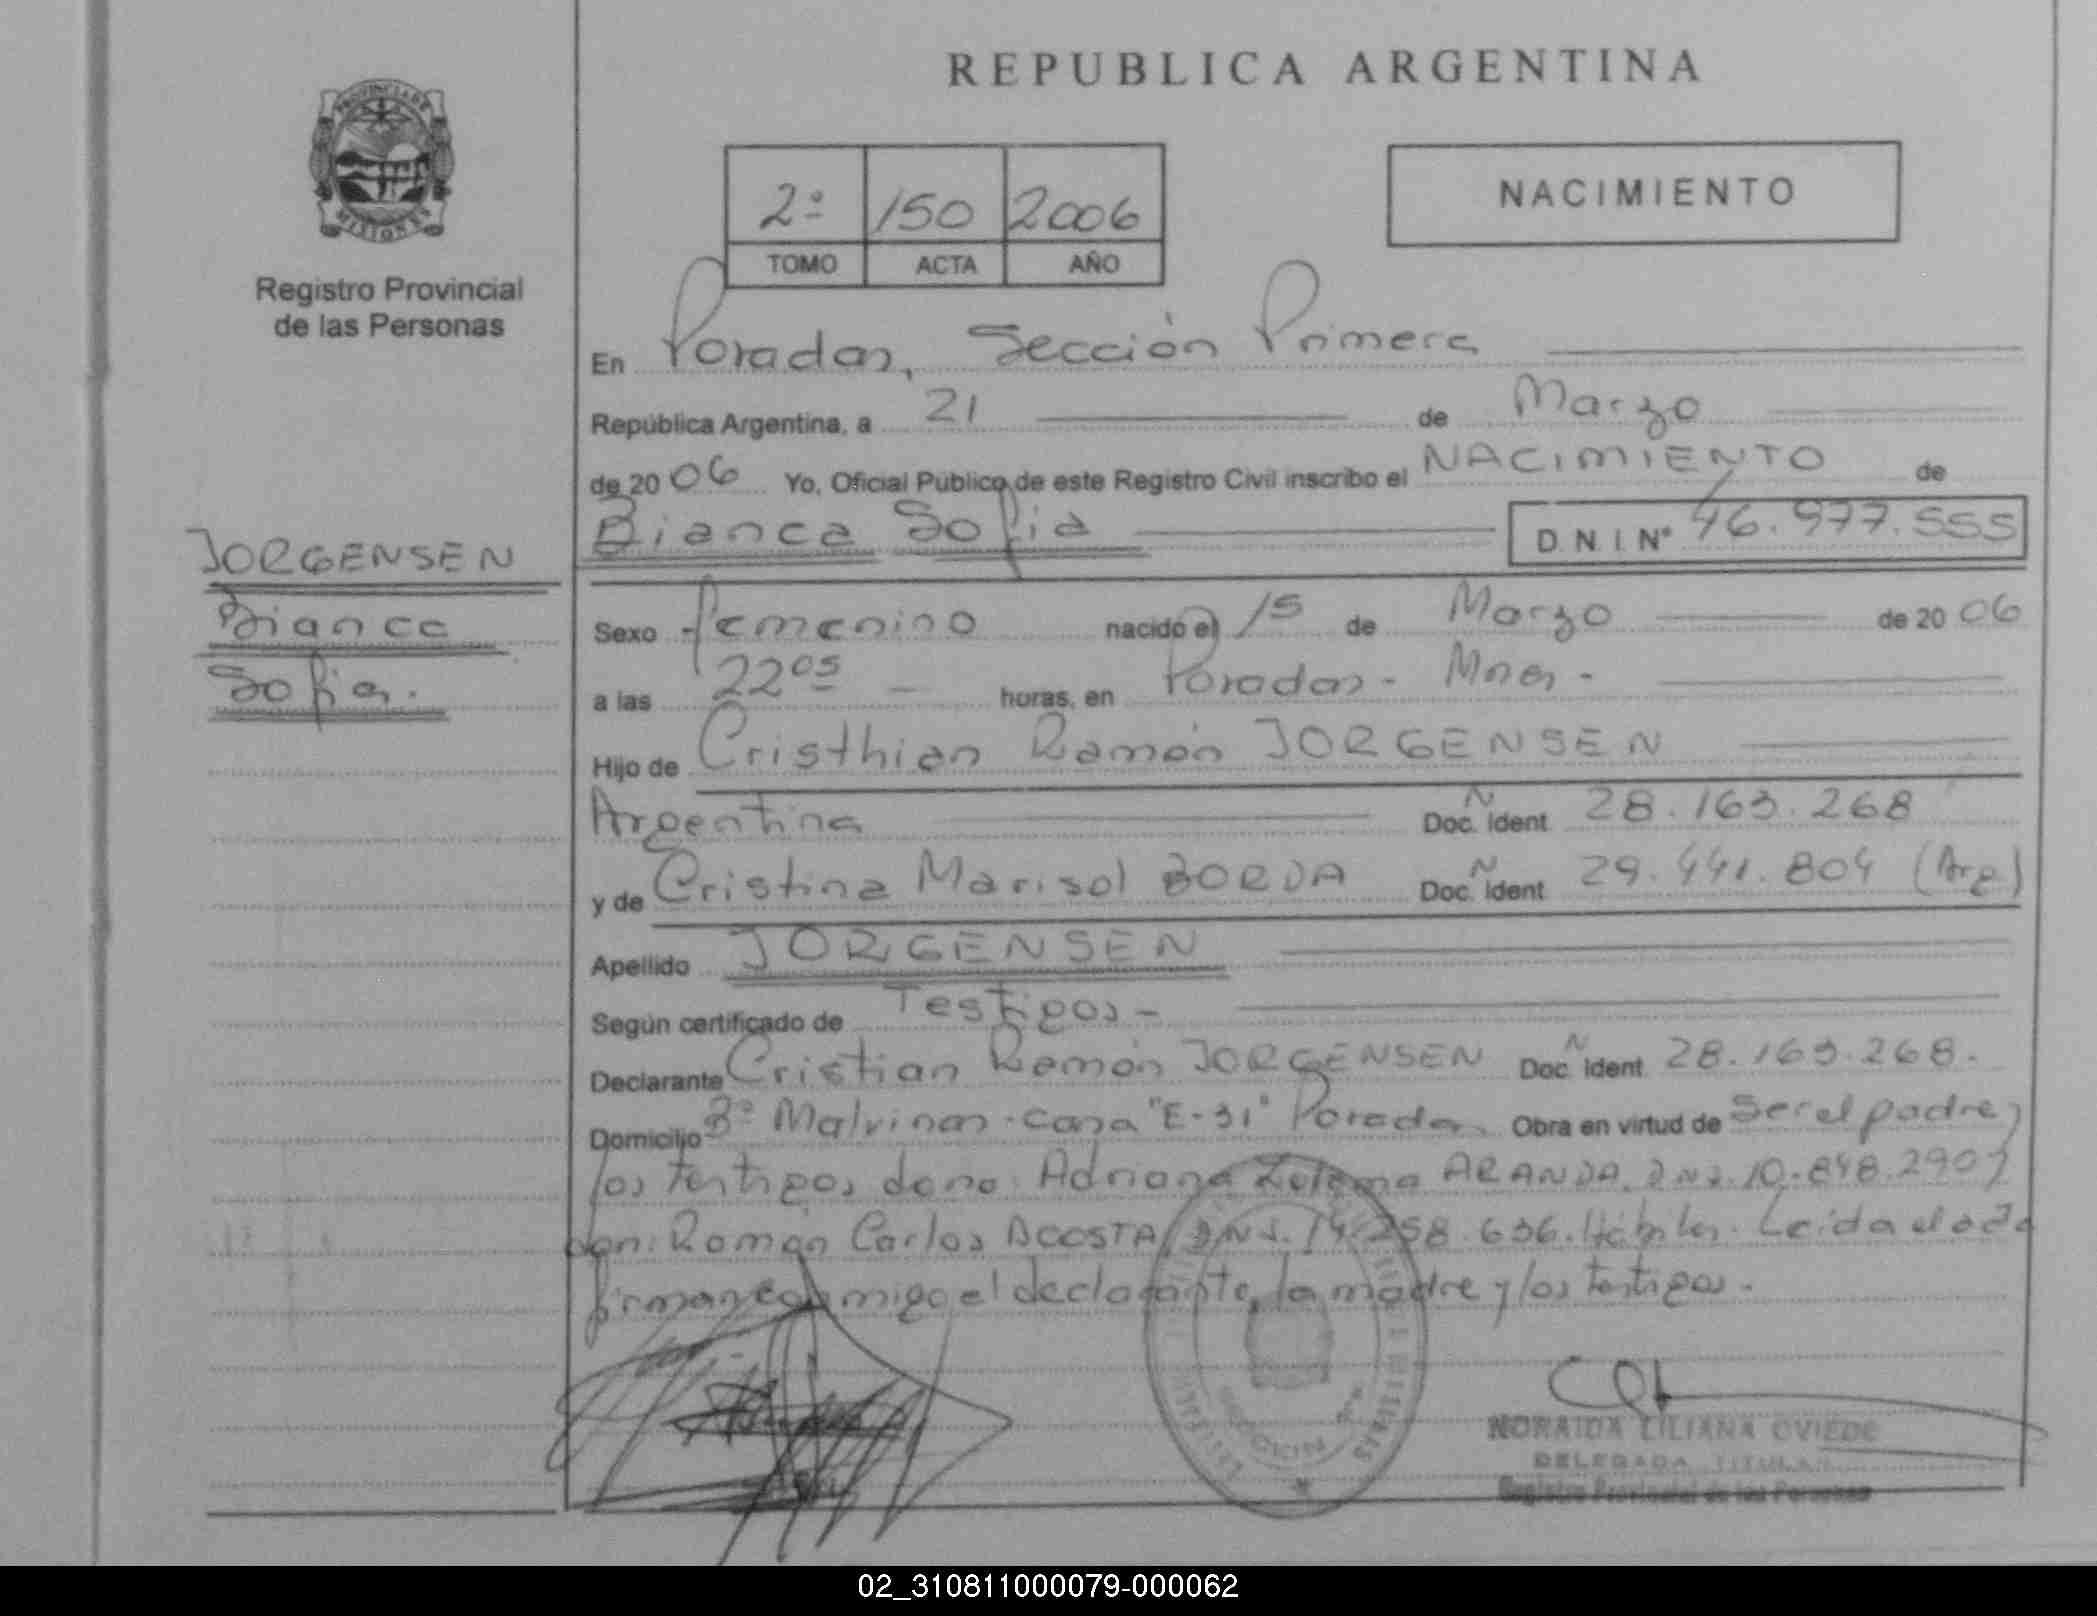 REPUBLICA ARGENTINA
PROVINCIA DE
MISIONES
Registro Provincial
de las Personas
2º 150 2006
TOMO ACTA AÑO
NACIMIENTO
En Posadas, Sección Primera
República Argentina, a 21 de Marzo
de 2006 Yo, Oficial Público de este Registro Civil inscribo el NACIMIENTO de
Bianca Sofia D.N.I. Nº 46.977.555
JORGENSEN
Bianca
Sofia.
Sexo femenino nacido el 15 de Marzo de 2006
a las 22⁰⁵ horas, en Posadas - Mnes -
Hijo de Cristhian Ramón JORGENSEN
Argentina Doc. Ident. 28.163.268
y de Cristina Marisol BORDA Doc. Ident. 29.441.804 (Arg)
Apellido JORGENSEN
Según certificado de Testigos -
Declarante Cristian Ramón JORGENSEN Doc. Ident. 28.163.268.
Domicilio Bº Malvinas - casa "E-31" Posadas Obra en virtud de Ser el padre,
los testigos doña: Adriana ARANDA, D.N.I. 10.848.290 y
don: Román Carlos ACOSTA, D.N.I. 14.258.636. Hábiles. Leida el acta
firman conmigo el declarante, la madre y los testigos.
NORAIDA LILIANA OVIEDO
DELEGADA TITULAR
Registro Provincial de las Personas
02_310811000079-000062